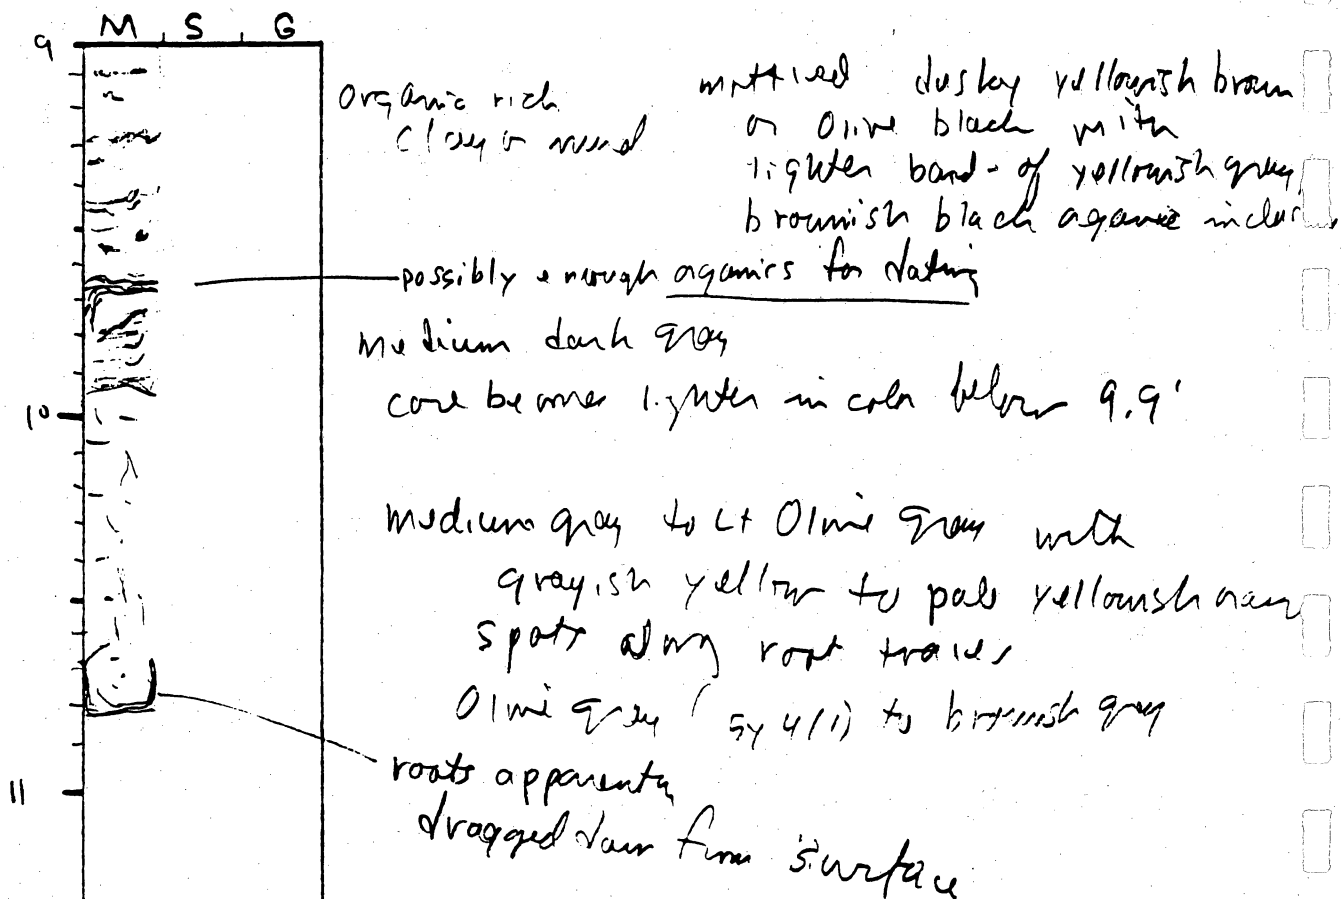 M S G
9
organic rich
clay or mud
mottled dusky yellowish brown
or olive black with
lighter bands of yellowish gray,
brownish black organic inclus
possibly enough organics for dating
medium dark gray
core becomes lighter in color below 9.9'
10
medium gray to Lt Olive gray with
grayish yellow to pale yellowish
spots along root traces
Olive gray (5y 4/1) to brownish gray
roots apparently
11
dragged down from surface